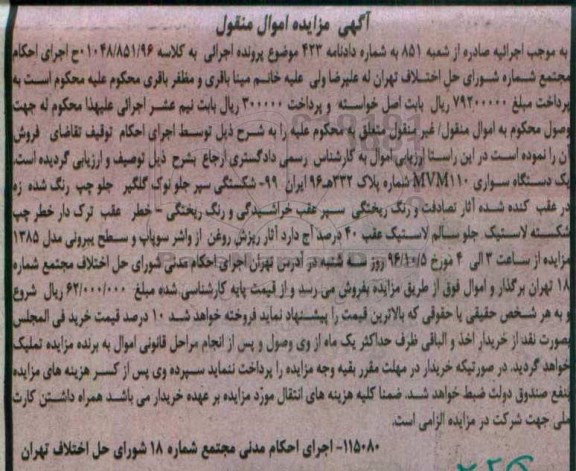 آگهی مزایده اموال منقول
به موجب اجرائیه صادره از شعبه ۸۵۱ به شماره دادنامه ۴۲۳ موضوع پرونده اجرائی به کلاسه ۰۱۰۴۸/۸۵۱/۹۶ح اجرای احکام
مجتمع شماره شورای حل اختلاف تهران له علیرضا ولی علیه خانم مینا باقری و مظفر باقری محکوم علیه محکوم است به
پرداخت مبلغ ۷۹۲۰۰۰۰۰ ریال بابت اصل خواسته و پرداخت ۳۰۰۰۰۰ ریال بابت نیم عشر اجرائی علیهذا محکوم له جهت
وصول محکوم به اموال منقول/ غیر منقول متعلق به محکوم علیه را به شرح ذیل توسط اجرای احکام توقیف تقاضای فروش
آن را نموده است در این راستا ارزیابی اموال به کارشناس رسمی دادگستری ارجاع بشرح ذیل توصیف و ارزیابی گردیده است.
یک دستگاه سواری MVM۱۱۰ شماره پلاک ۳۳۲هـ۹۶ ایران ۹۹- شکستگی سپر جلو نوک گلگیر جلو چپ رنگ شده زه
در عقب کنده شده آثار تصادفت و رنگ ریختگی سپر عقب خراشیدگی و رنگ ریختگی - خطر عقب ترک دار خطر چپ
شکسته لاستیک جلو سالم لاستیک عقب ۴۰ درصد آج دارد آثار ریزش روغن از واشر سوپاپ و سطح بیرونی مدل ۱۳۸۵
مزایده از ساعت ۳ الی ۴ مورخ ۹۶/۱۰/۵ روز سه شنبه در آدرس تهران اجرای احکام مدنی شورای حل اختلاف مجتمع شماره
۱۸ تهران برگذار و اموال فوق از طریق مزایده بفروش می رسد و از قیمت پایه کارشناسی شده مبلغ ۶۲/۰۰۰/۰۰۰ ریال شروع
و به هر شخص حقیقی یا حقوقی که بالاترین قیمت را پیشنهاد نماید فروخته خواهد شد ۱۰ درصد قیمت خرید فی المجلس
بصورت نقد از خریدار اخذ و الباقی ظرف حداکثر یک ماه از وی وصول و پس از انجام مراحل قانونی اموال به برنده مزایده تملیک
خواهد گردید. در صورتیکه خریدار در مهلت مقرر بقیه وجه مزایده را پرداخت ننماید سپرده وی پس از کسر هزینه های مزایده
بنفع صندوق دولت ضبط خواهد شد. ضمنا کلیه هزینه های انتقال مورد مزایده بر عهده خریدار می باشد همراه داشتن کارت
ملی جهت شرکت در مزایده الزامی است.
۱۱۵۰۸۰- اجرای احکام مدنی مجتمع شماره ۱۸ شورای حل اختلاف تهران